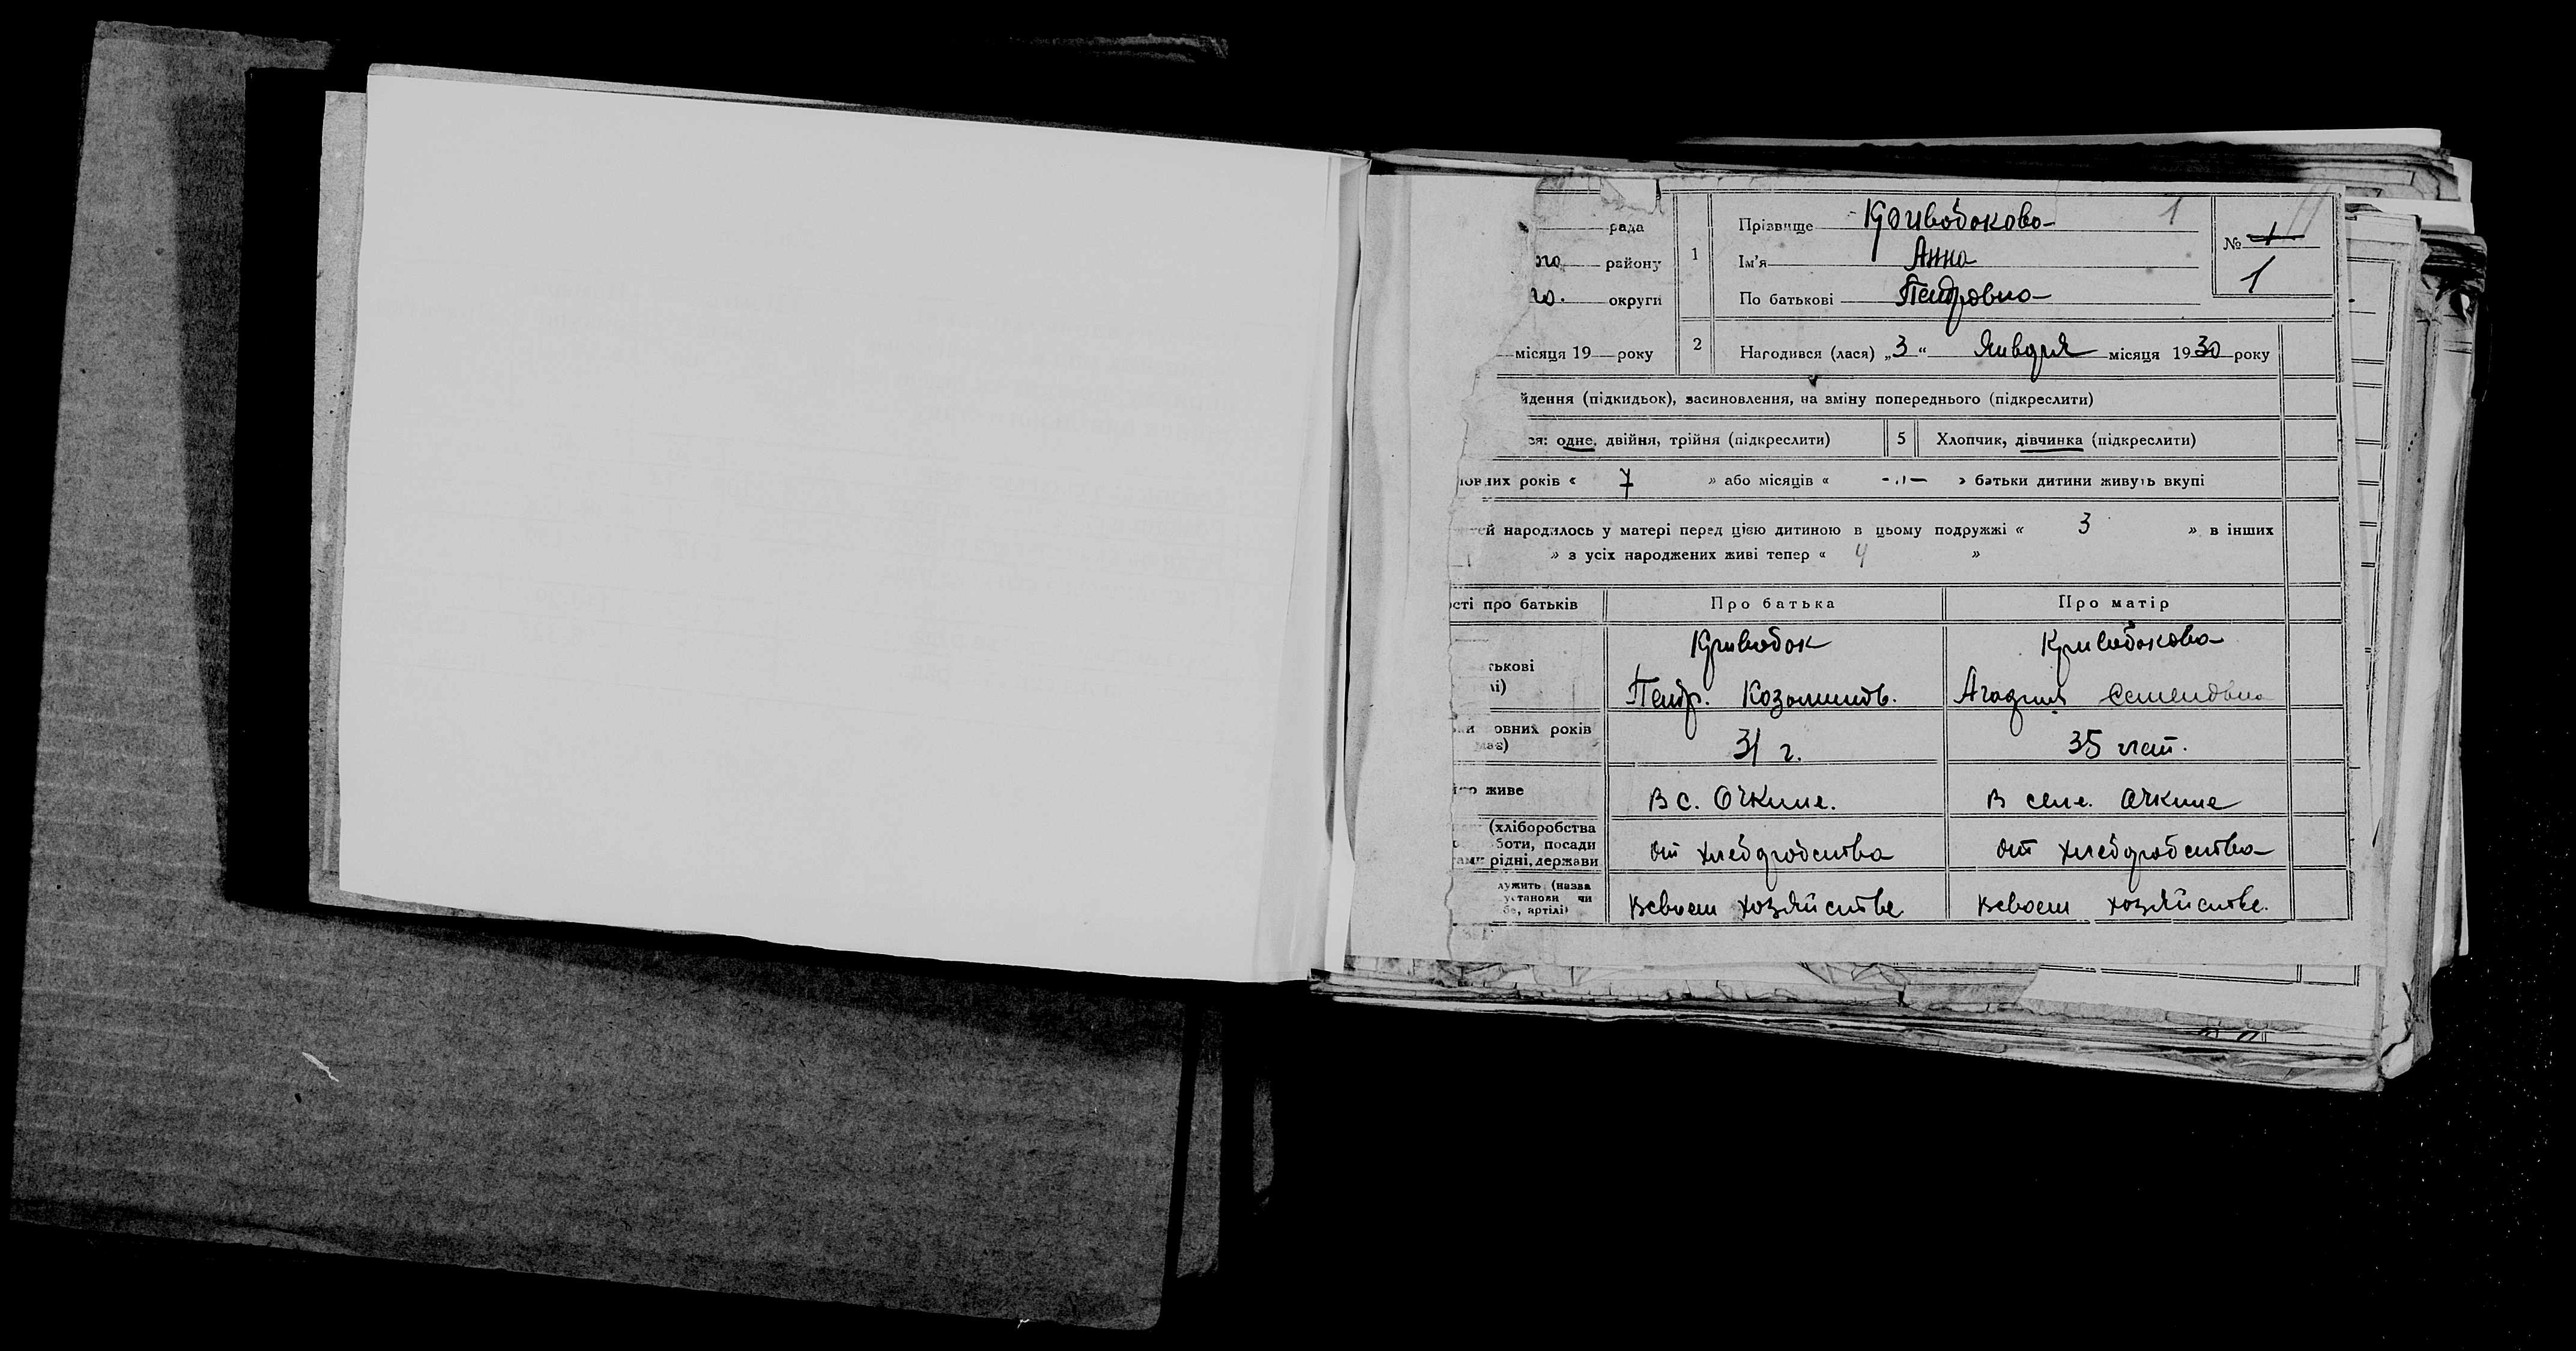 рада
1 Прізвище Кривобокова 1
№ 1
ого району
Ім'я Анна
1
го. округи
По батькові Петровна
місяця 19 року
2 Народився (лася) „3“ Января місяця 1930 року
йдення (підкидьок), засиновлення, на зміну попереднього (підкреслити)
ся: одне, двійня, трійня (підкреслити) 5 Хлопчик, дівчинка (підкреслити)
овних років « 7 » або місяців « -"- » батьки дитини живуть вкупі
тей народилось у матері перед цією дитиною в цьому подружжі « 3 » в інших
» з усіх народжених живі тепер « 4 »
ості про батьків Про батька Про матір
Кривобок Кривобокова
тькові
лі)
Петр. Козьмить. Агафия Семеновна
овних років
має)
31 г. 35 лет.
живе В с. Очкине. В селе. Очкине
(хліборобства
боти, посади
рідні, держави
от хлебробства от хлебробства
лужить (назва
установи чи
бе, артілі)
всвоем хозяйстве. всвоем хозяйстве.